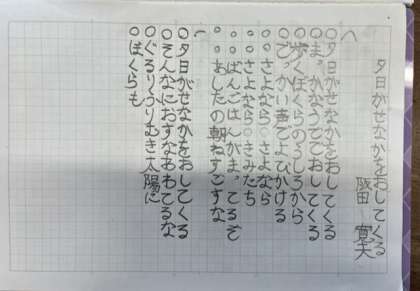 夕日がせなかをおしてくる
阪田 寛夫
○夕日がせなかをおしてくる
○まっかなうででおしてくる
○歩くぼくらのうしろから
○でっかい声でよびかける
○○さよなら○さよなら
○○さよなら○きみたち
○○ばんごはんがまってるぞ
○○あしたの朝ねすごすな
○夕日がせなかをおしてくる
○そんなにおすなあわてるな
○ぐるりふりむき太陽に
○ぼくらも